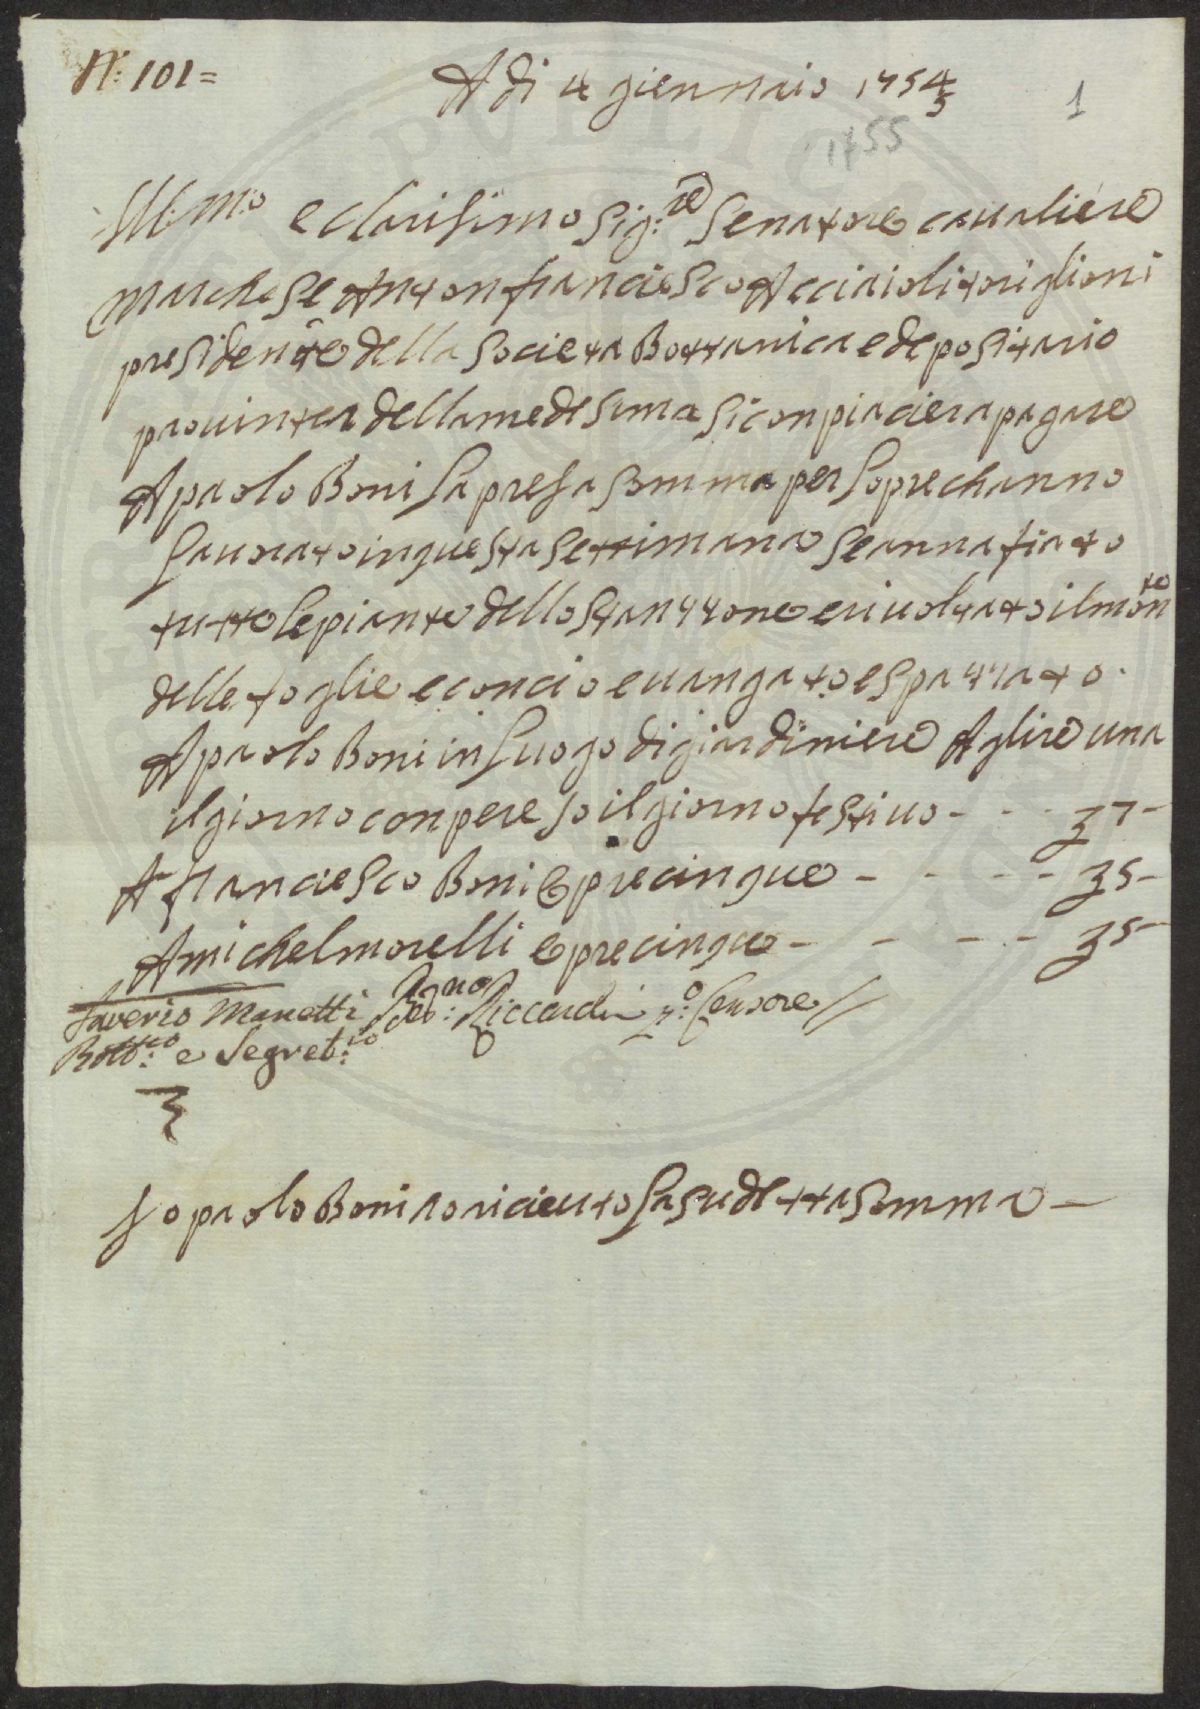 N: 101=
A di 4 giennaio 1754/5
1
1755
Ill:m:o e clarisimo Sig:re Senatore caualiere
Marchese Anton franciesco Acciaioli toriglioni
presidente della Societa Bottanica e depositario
prouinter della medesima Si conpiaciera pagare
A paolo Boni la presa somma per lopre channo
lauorato in questa Settimana Se anna fiato
tutte le piante dello Stanzzone e riuoltato il monte
delle foglie e concio e uangato e spazzato.
A paolo Boni in luogo di giardiniere A lire una
il giorno conpereso il giorno festiuo - - - 7 -
A franciesco Boni opre cinque - - - - 5 -
A michel morelli opre cinque - - - - 5 -
Saverio Manetti
Bott:co e Segret:rio
Riccardi Censore
Io paolo Boni o riceuto la sudetta somma -